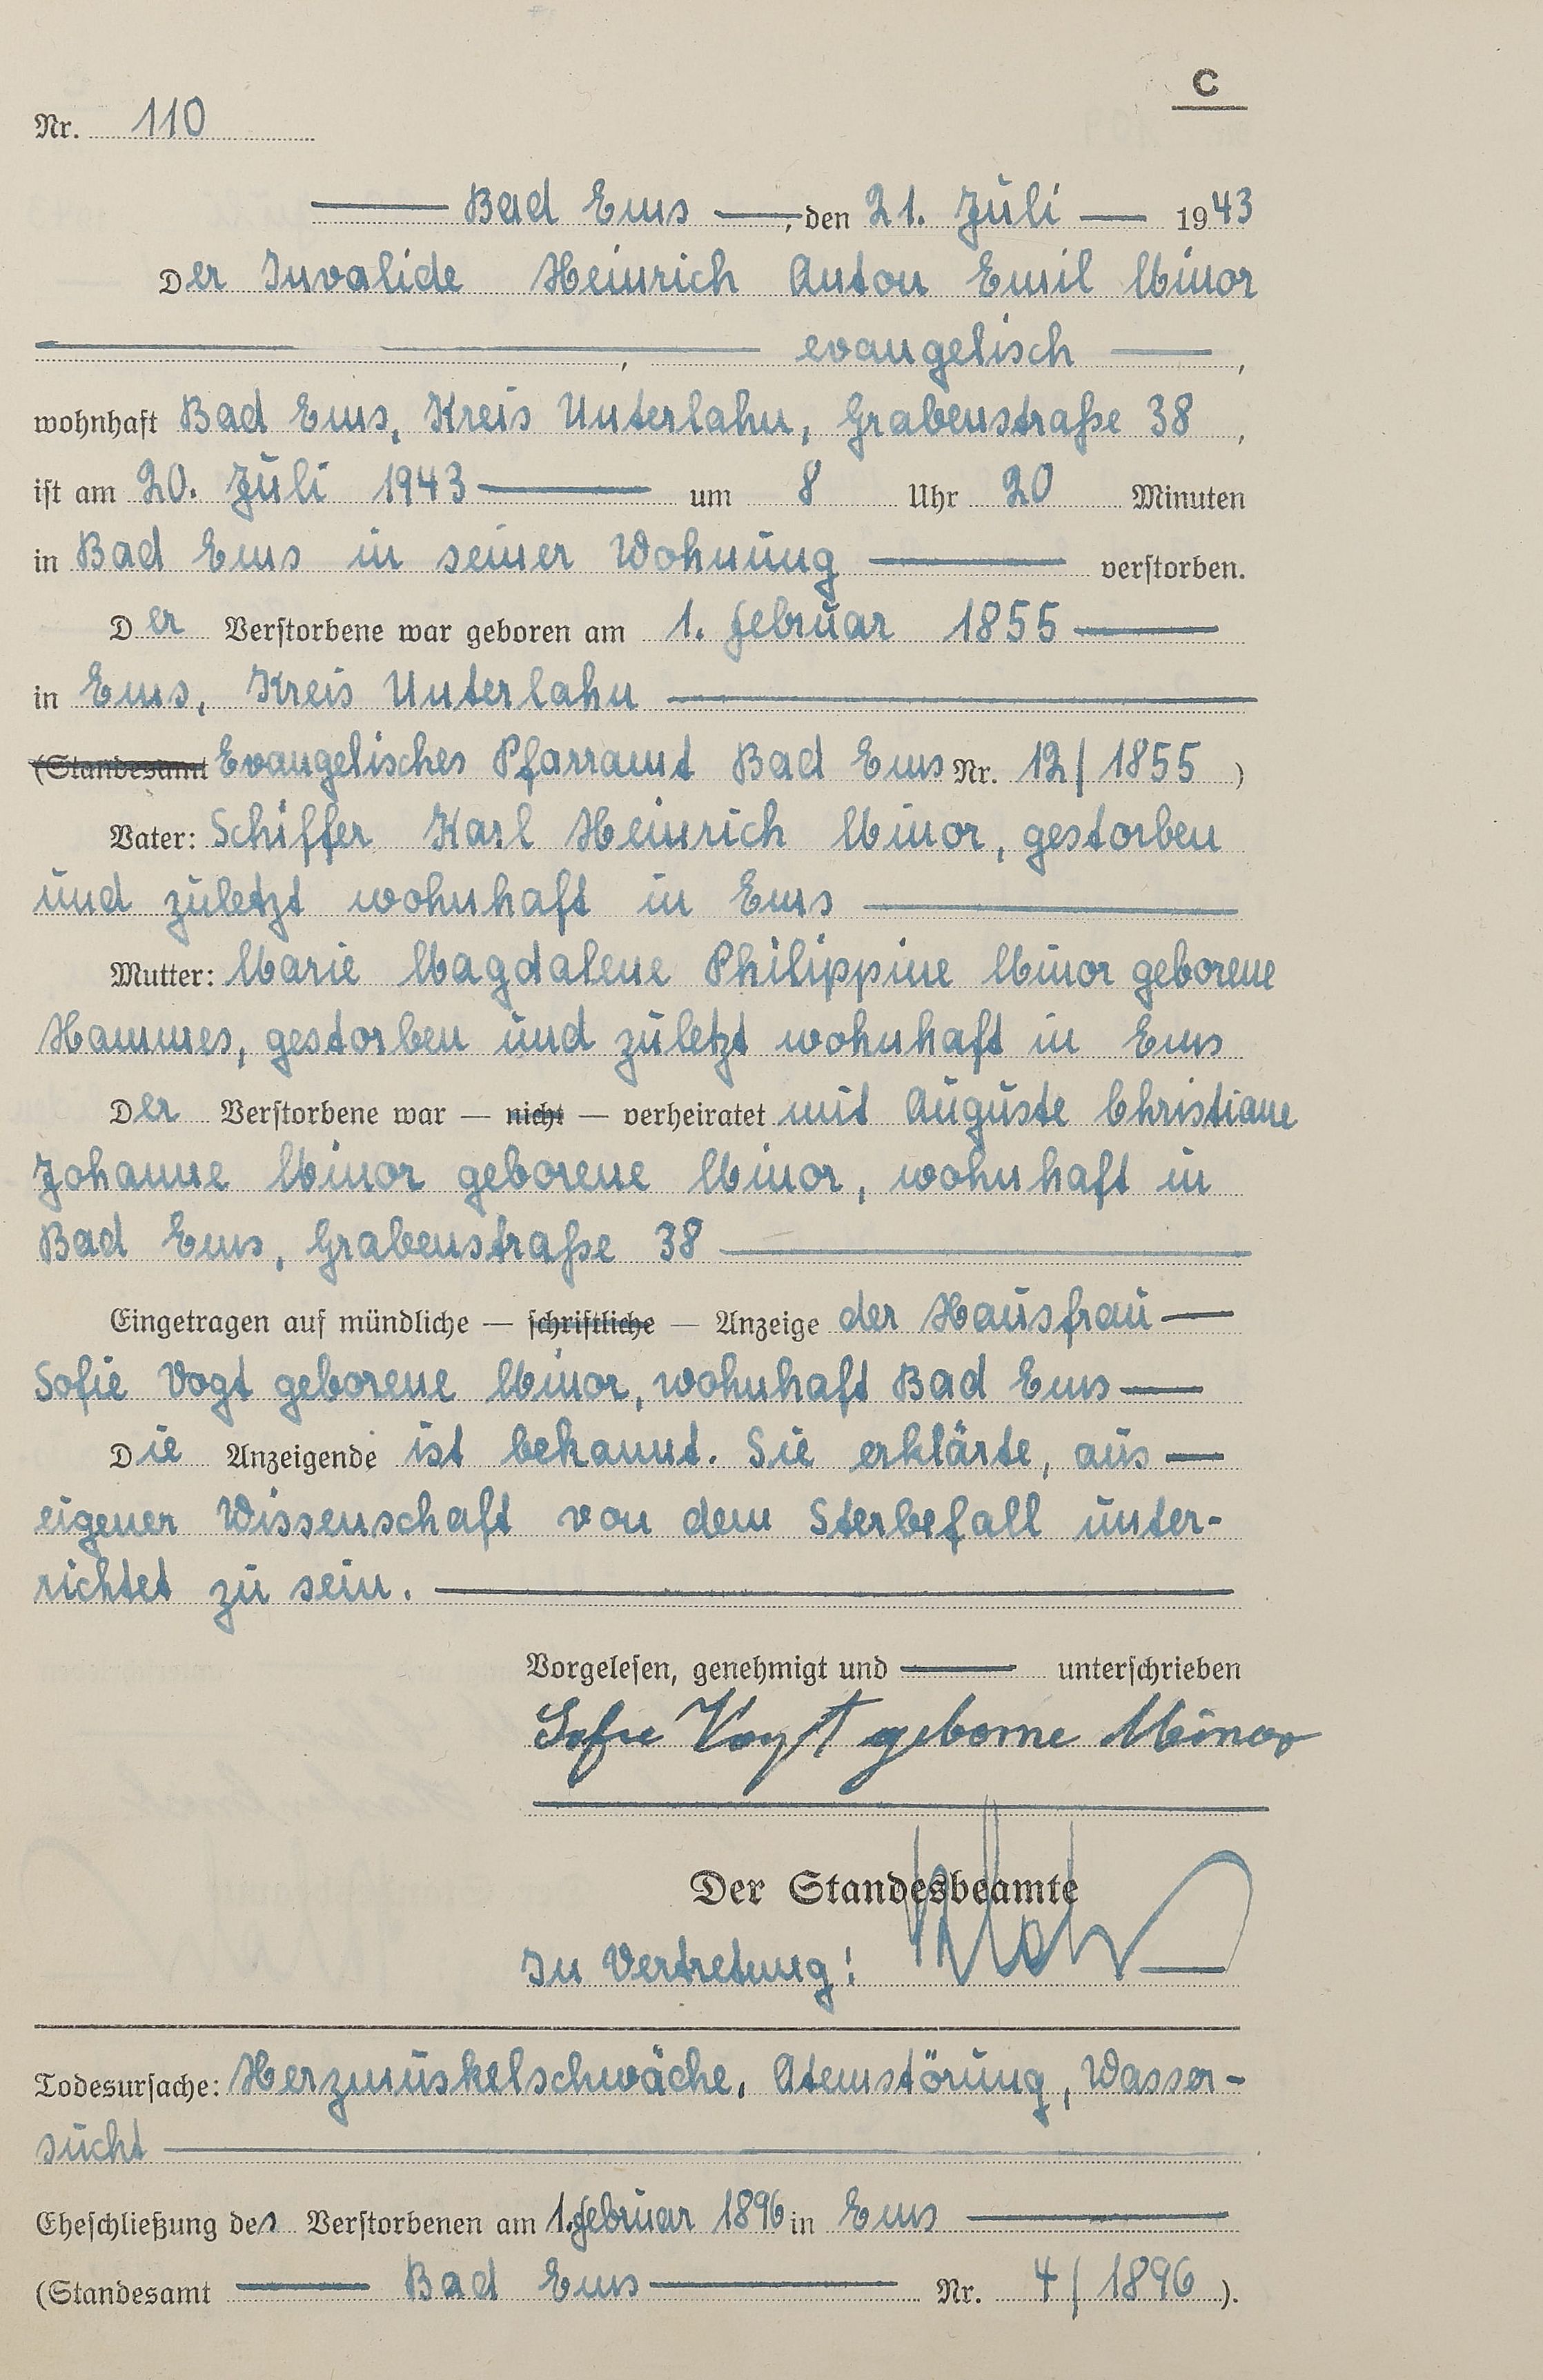 C
Nr. 110
Bad Ems, den 21. Juli 1943
Der Invalide Heinrich Anton Emil Minor
, evangelisch,
wohnhaft Bad Ems, Kreis Unterlahn, Grabenstraße 38,
ist am 20. Juli 1943 um 8 Uhr 20 Minuten
in Bad Ems in seiner Wohnung verstorben.
Der Verstorbene war geboren am 1. Februar 1855
in Ems, Kreis Unterlahn
(Standesamt Evangelisches Pfarramt Bad Ems Nr. 12/1855)
Vater: Schiffer Karl Heinrich Minor, gestorben
und zuletzt wohnhaft in Ems
Mutter: Marie Magdalene Philippine Minor geborene
Hammes, gestorben und zuletzt wohnhaft in Ems
Der Verstorbene war — nicht — verheiratet mit Auguste Christiane
Johanne Minor geborene Minor, wohnhaft in
Bad Ems, Grabenstraße 38
Eingetragen auf mündliche — schriftliche — Anzeige der Hausfrau
Sofie Vogt geborene Minor, wohnhaft Bad Ems
Die Anzeigende ist bekannt. Sie erklärte, aus
eigener Wissenschaft von dem Sterbefall unter-
richtet zu sein.
Vorgelesen, genehmigt und unterschrieben
Sofie Vogt geborne Minor
Der Standesbeamte
In Vertretung!
Todesursache: Herzmuskelschwäche, Atemstörung, Wasser-
sucht
Eheschließung des Verstorbenen am 1. Februar 1896 in Ems
(Standesamt Bad Ems Nr. 4/1896).